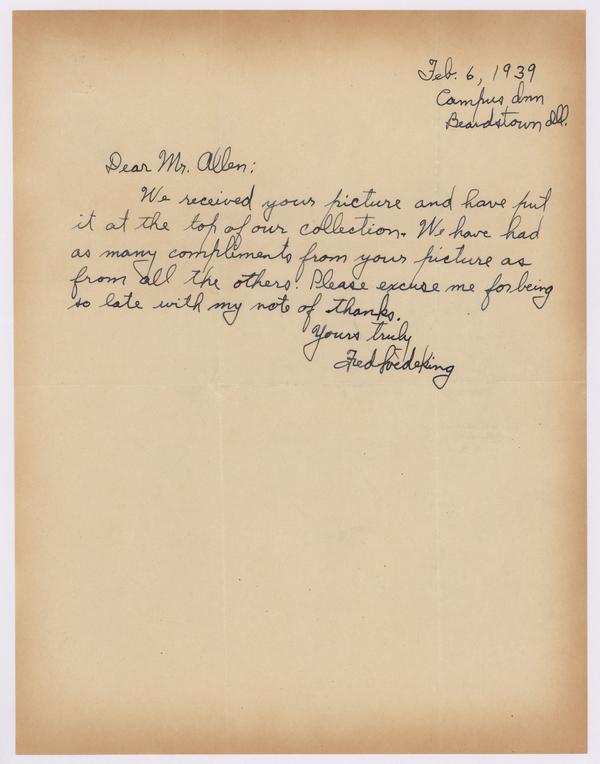 Feb. 6, 1939
Campus Inn
Beardstown Ill.
Dear Mr. Allen:
We received your picture and have put
it at the top of our collection. We have had
as many compliments from your picture as
from all the others. Please excuse me for being
so late with my note of thanks.
Yours truly
Fred